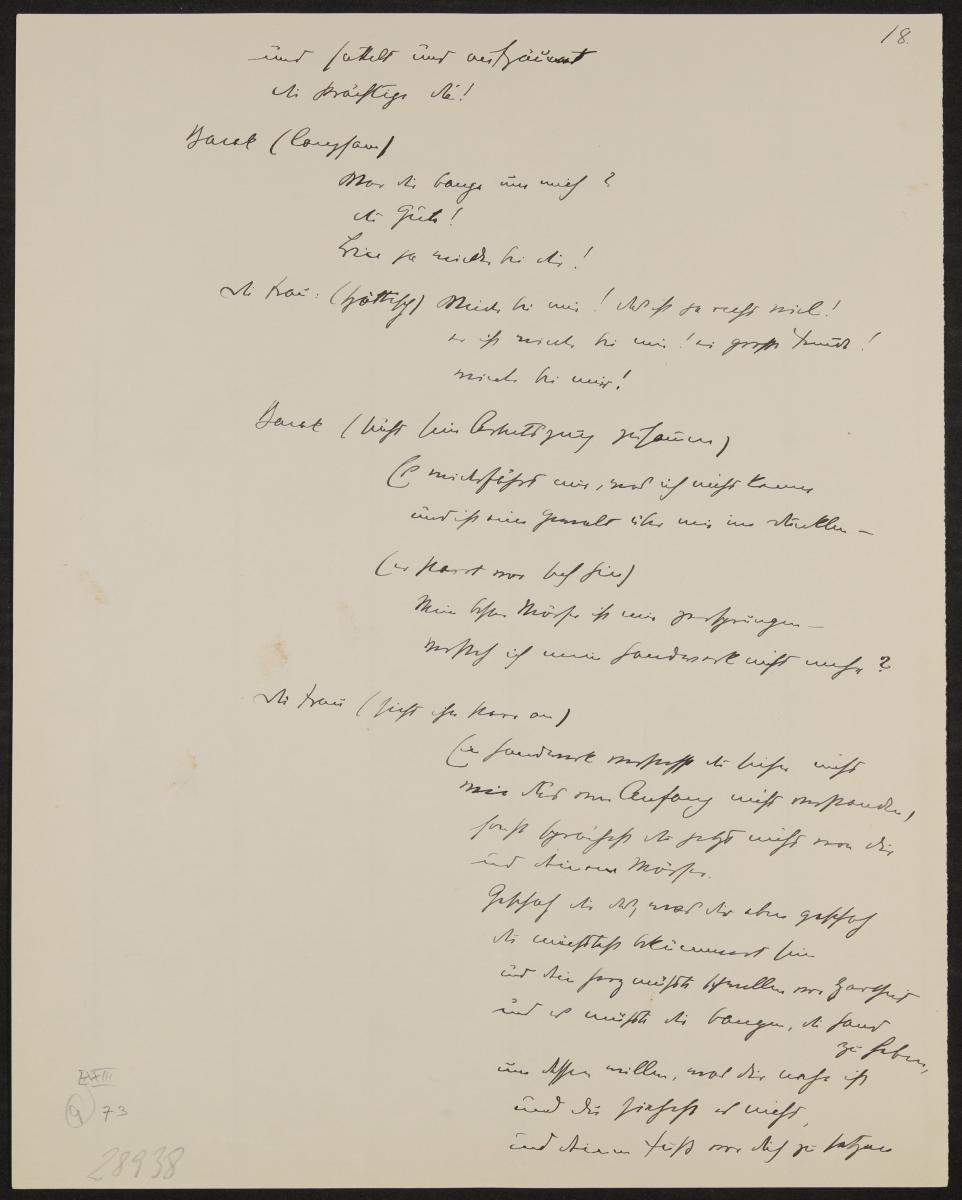 18.
und sattelt und aufzäumt
die kräftige
Barak (langsam)
War dir bange um mich?
du Gute!
Bin ja wieder bei dir!
die Frau: (spöttisch) Wieder bei mir! das ist ja recht viel!
er ist wieder bei mir! die grosse Freude!
wieder bei mir!
Barak (sucht sein Arbeitszeug zusammen)
Es widerfährt mir, was ich nicht kenne
und ist eine Gewalt über mir im Dunklen —
(er starrt vor sich hin)
Mein bester Mörser ist mir zersprungen —
versteh ich mein Handwerk nicht mehr?
die Frau (sieht ihn starr an)
Ein Handwerk verstehst du sicher nicht
wenn du's von Anfang nicht verstanden,
sonst sprächest du jetzt nicht von dir
und deinem Mörser.
Geschah dir das, was dir eben geschah
du müsstest bekümmert sein
und dein Herz müsste schwellen vor Zartheit
und es müsste dir bangen, die Hand
zu heben,
um dessen willen, was dir nahe ist
und du siehst es nicht,
und deinen Fuß vor dich zu setzen
73
28938